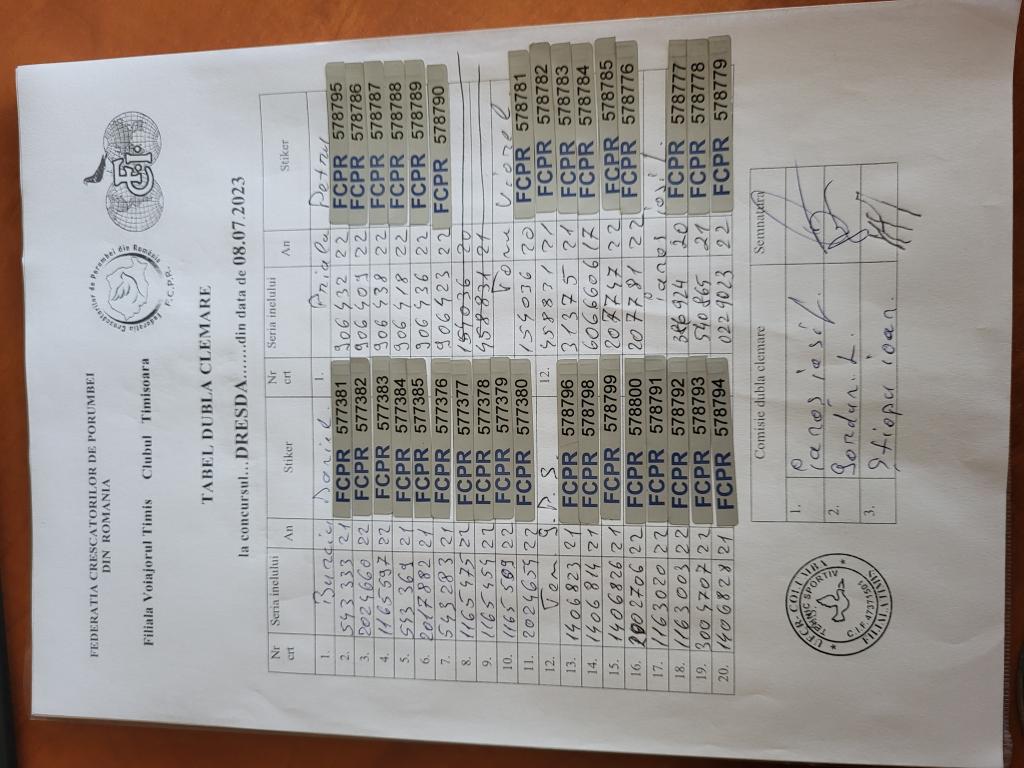 FEDERATIA CRESCATORILOR DE PORUMBEI
DIN ROMANIA
Filiala Voiajorul Timis Clubul Timisoara
Federatia Crescatorilor de Porumbei din România
F.C.P.R.
FCI
TABEL DUBLA CLEMARE
la concursul....DRESDA.......din data de 08.07.2023
Nr crt Seria inelului An Stiker Nr crt Seria inelului An Stiker
1. Daniel 1. Petru
2. 543333 21 FCPR 577381 906432 22 FCPR 578795
3. 2024660 22 FCPR 577382 906409 22 FCPR 578786
4. 1165597 22 FCPR 577383 906438 22 FCPR 578787
5. 543369 21 FCPR 577384 906418 22 FCPR 578788
6. 2017882 21 FCPR 577385 906436 22 FCPR 578789
7. 543283 21 FCPR 577376 906423 22 FCPR 578790
8. 1165475 22 FCPR 577377 154036 20
9. 1165454 22 FCPR 577378 458831 21
10. 1165509 22 FCPR 577379 Toma Viorel
11. 2024654 22 FCPR 577380 154036 20 FCPR 578781
12. Tom 12. 458831 21 FCPR 578782
13. 1406823 21 FCPR 578796 313775 21 FCPR 578783
14. 1406814 21 FCPR 578798 606606 17 FCPR 578784
15. 1406826 21 FCPR 578799 207747 22 FCPR 578785
16. 2002706 22 FCPR 578800 207781 22 FCPR 578776
17. 1163020 22 FCPR 578791 Ianos Iosif
18. 1163003 22 FCPR 578792 386924 20 FCPR 578777
19. 3004707 22 FCPR 578793 540865 21 FCPR 578778
20. 1406828 21 FCPR 578794 0229023 22 FCPR 578779
Comisie dubla clemare Semnatura
1. Ianos iosif
2. Bordán. L.
3. Știopu ioan.
UFCCR COLUMBA
TEHNIC SPORTIV
FILIALA TIMIS